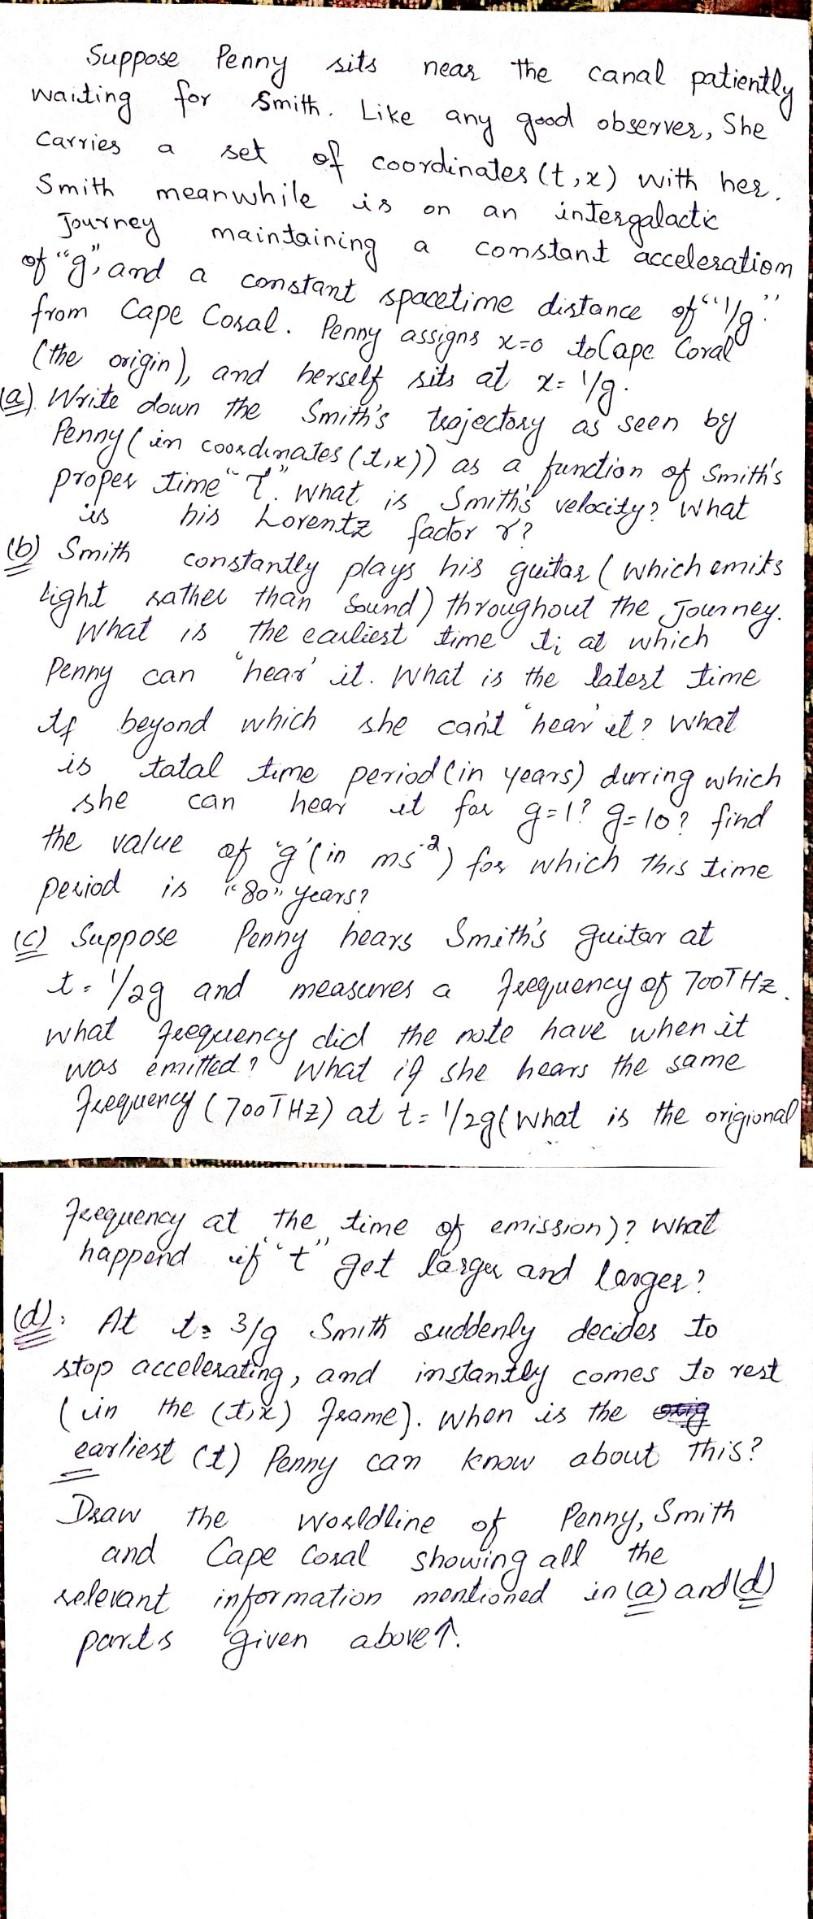 Suppose Penny sits near the canal patiently
waiting for Smith. Like any good observer, She
Carries a set of coordinates (t,x) with her.
Smith meanwhile is on an intergalactic
Journey maintaining a constant acceleration
of "g", and a constant spacetime distance of "1/g"
from Cape Coral. Penny assigns x=0 to Cape Coral
(the origin), and herself sits at x= 1/g.
(a). Write down the Smith's trajectory as seen by
Penny (in coordinates (t,x)) as a function of Smith's
proper time "τ". What is Smith's velocity? What
is his Lorentz factor γ?
(b) Smith constantly plays his guitar (which emits
light rather than sound) throughout the Journey.
What is the earliest time ti at which
Penny can 'hear' it. What is the latest time
tf beyond which she can't 'hear' it? What
is tatal time period (in years) during which
she can hear it for g=1? g=10? find
the value of 'g' (in ms⁻²) for which this time
period is "80" years?
(c) Suppose Penny hears Smith's guitar at
t= 1/2g and measures a frequency of 700THz.
What frequency did the note have when it
was emitted? What if she hears the same
frequency (700THz) at t= 1/2g (What is the origional
frequency at the time of emission)? What
happend if "t" get larger and larger?
(d): At t= 3/g Smith suddenly decides to
stop accelerating, and instantly comes to rest
(in the (t,x) frame). When is the
earliest (t) Penny can know about this?
Draw the Worldline of Penny, Smith
and Cape Coral showing all the
relevant information mentioned in (a) and (d)
parts given above↑.